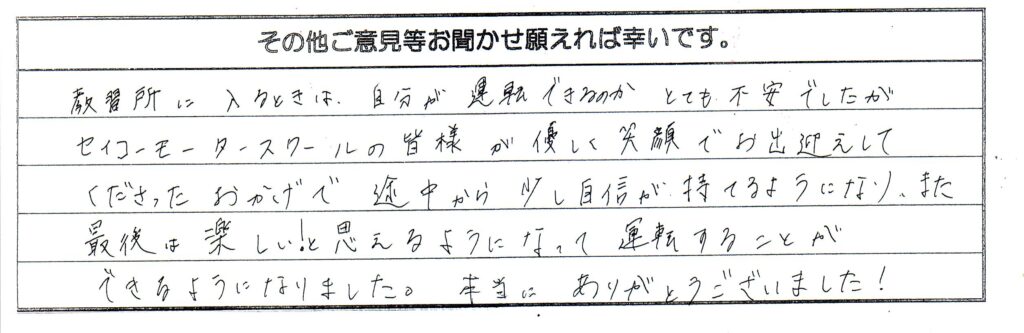 その他ご意見等お聞かせ願えれば幸いです。
教習所に入るときは、自分が運転できるのかとても不安でしたが
セイコーモータースクールの皆様が優しく笑顔でお出迎えして
くださったおかげで途中から少し自信が持てるようになり、また
最後は楽しい!と思えるようになって運転することが
できるようになりました。本当にありがとうございました!